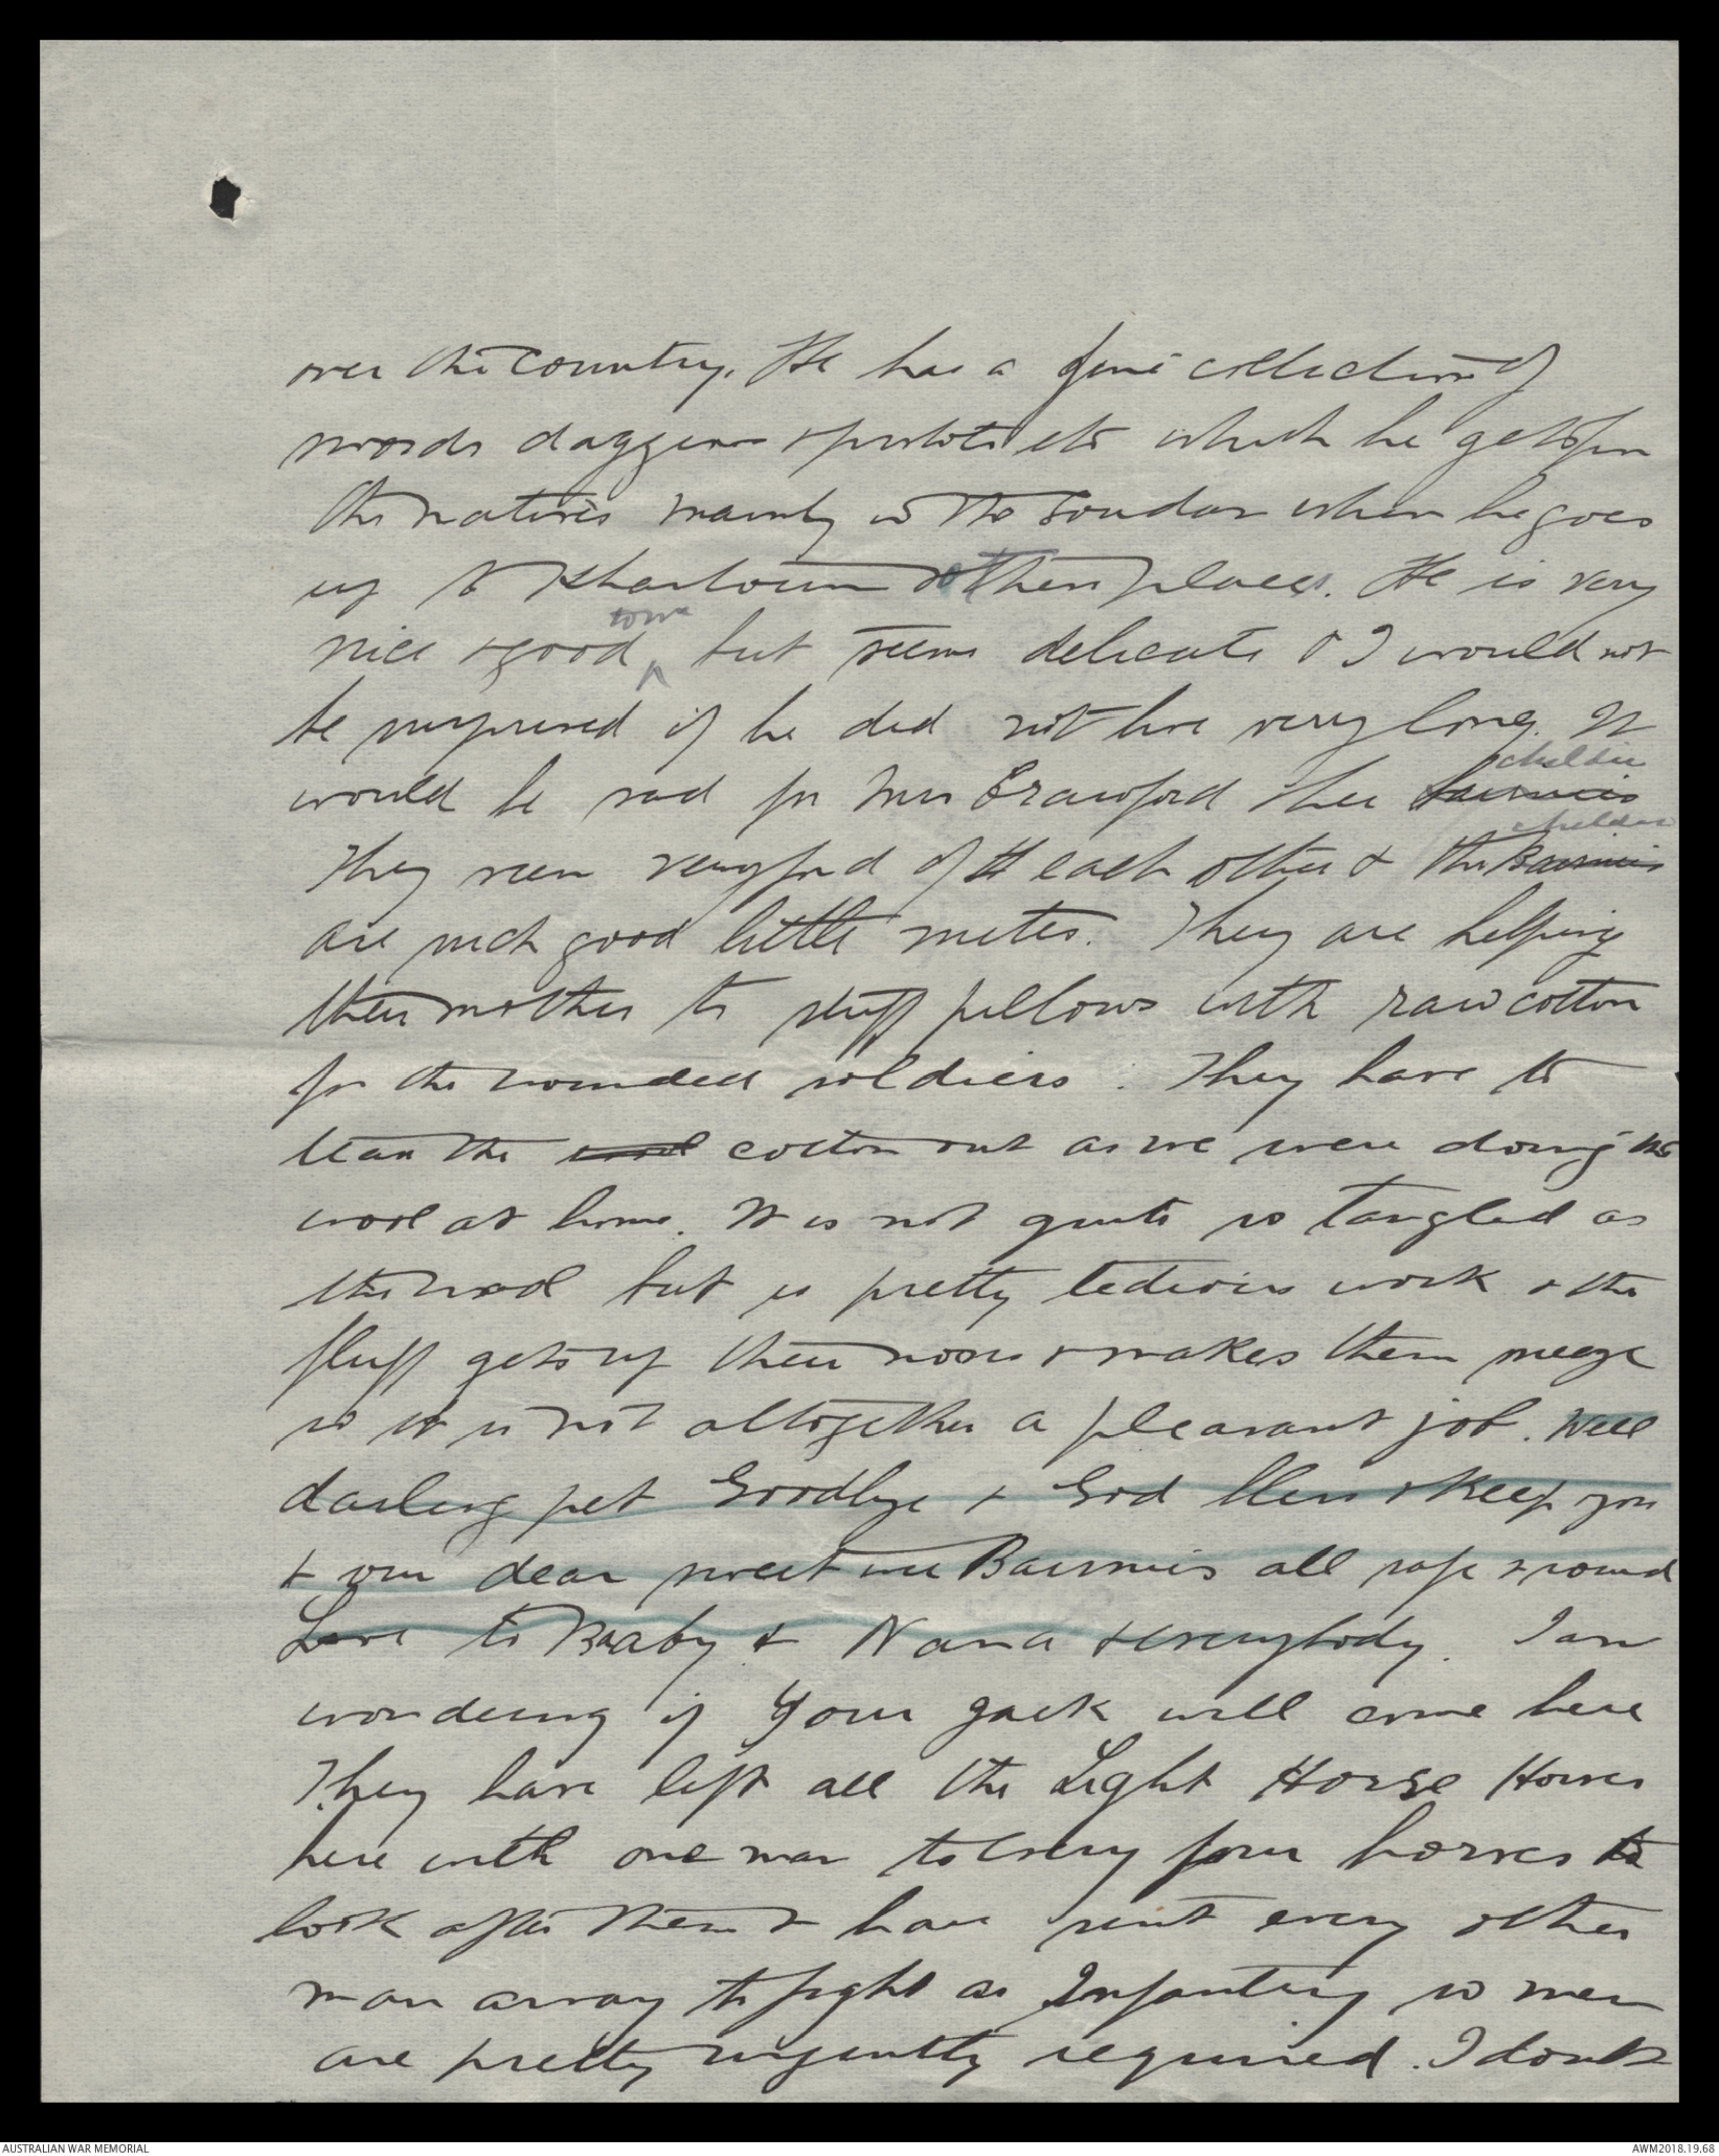 over the country. He has a fine collection of
swords daggers & pistols etc which he gets from
the natives mainly in the Soudan when he goes
up to Khartoum & other places. He is very
to me
nice & good ^ but seems delicate & I would not
be surprised if he did not live very long. It
children
would be sad for Mrs Crawford & her bairnies
children
They seem very fond of each other & the Bairnies
are such good little mites. They are helping
their mother to stuff pillows with raw cotton
for the wounded soldiers. They have to
tear the wool cotton out as we were doing the
wool at home. It is not quite so tangled as
the wool but is pretty tedious work & the
fluff gets up their noses & makes them sneeze
so it is not altogether a pleasant job. Well
darling pet Goodbye & God bless & keep you
& our dear sweet wee Bairnies all safe & sound
Love to Baaby & Nana & everybody. I am
wondering if your Jack will come here
They have left all the Light Horse Horses
here with one man to every four horses to
look after them & have sent every other
man away to fight as Infantry so men
are pretty urgently required. I doubt
AUSTRALIAN WAR MEMORIAL
AWM2018.19.68